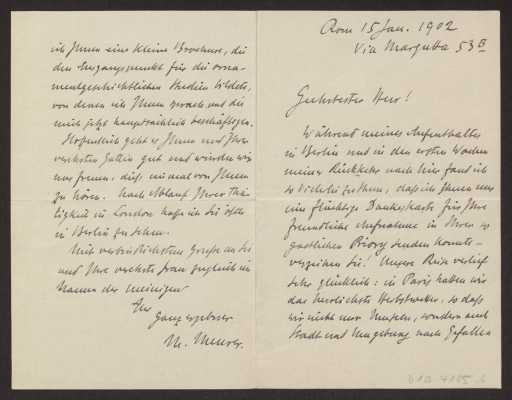 Rom 15 Jan. 1902
Via Margutta 53 B
Geehrtester Herr!
Während meines Aufenthaltes
in Berlin und in den ersten Wochen
meiner Rückkehr nach hier fand ich
so vielerlei zu thun, daß ich Ihnen nur
eine flüchtige Dankeskarte für Ihre
freundliche Aufnahme in Ihrer so
gastlichen Priory senden konnte –
verzeihen Sie! Unsere Reise verlief
sehr glücklich: in Paris hatten wir
das herrlichste Herbstwetter, so daß
wir nicht nur Museen, sondern auch
Stadt und Umgebung nach Gefallen
ich Ihnen eine kleine Brochure, die
den Ausgangspunkt für die orna-
mentgeschichtlichen Studien bildete,
von denen ich Ihnen sprach und die
mich jetzt hauptsächlich beschäftigen.
Hoffentlich geht es Ihnen und Ihrer
verehrten Gattin gut und würden wir
uns freuen, bald einmal von Ihnen
zu hören. Nach Ablauf Ihrer Thä-
tigkeit in London hoffe ich Sie öfter
in Berlin zu sehen.
Mit verbindlichstem Gruße an Sie
und Ihre verehrte Frau zugleich im
Namen der meinigen
Ihr
ganz ergebener
M. Meurer.